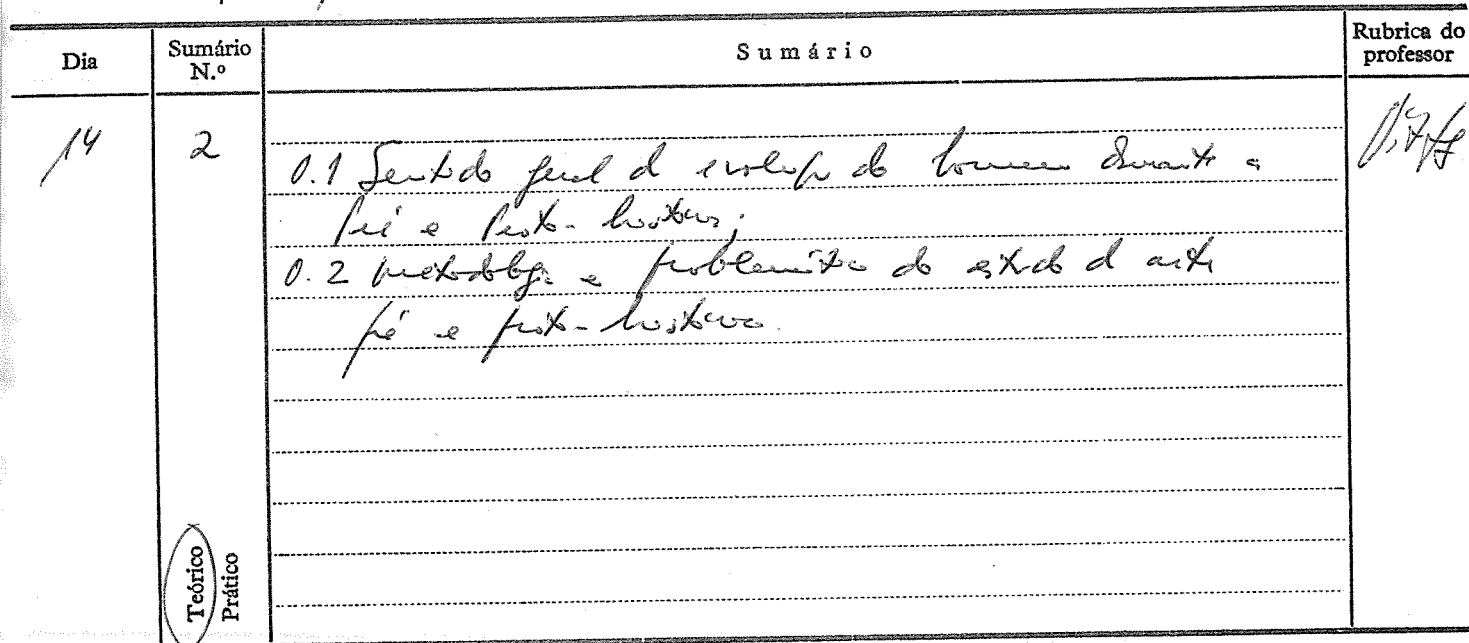 Dia
Sumário N.º
Sumário
Rubrica do professor
14
2
0.1 Sentido geral da evolução do homem durante a
pré e Proto-história;
0.2 metodologia e problemática do estudo da arte
pré e proto-histórica.
Teórico
Prático